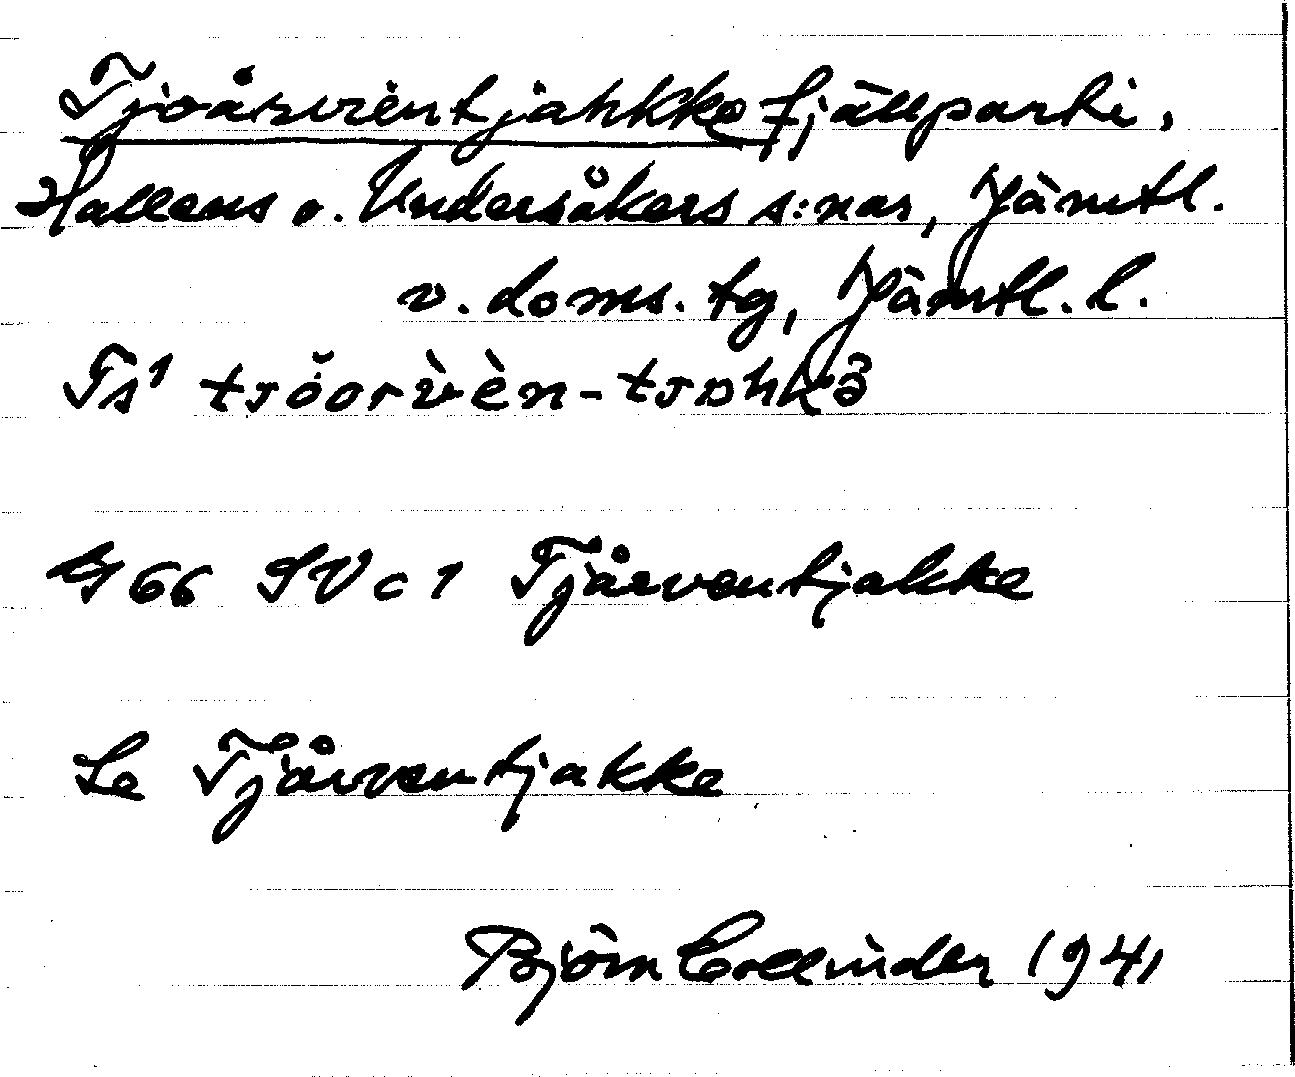 Tjoårvientjahkke fjällparti,
Hallens o. Undersåkers s:nar, Jämtl.
v. doms. tg, Jämtl. l.
Ts¹ tsŏorv̀èn-tsɒhkɜ
G 66 SV c 1 Tjårventjakke
Le Tjårventjakke
Björn Collinder 1941